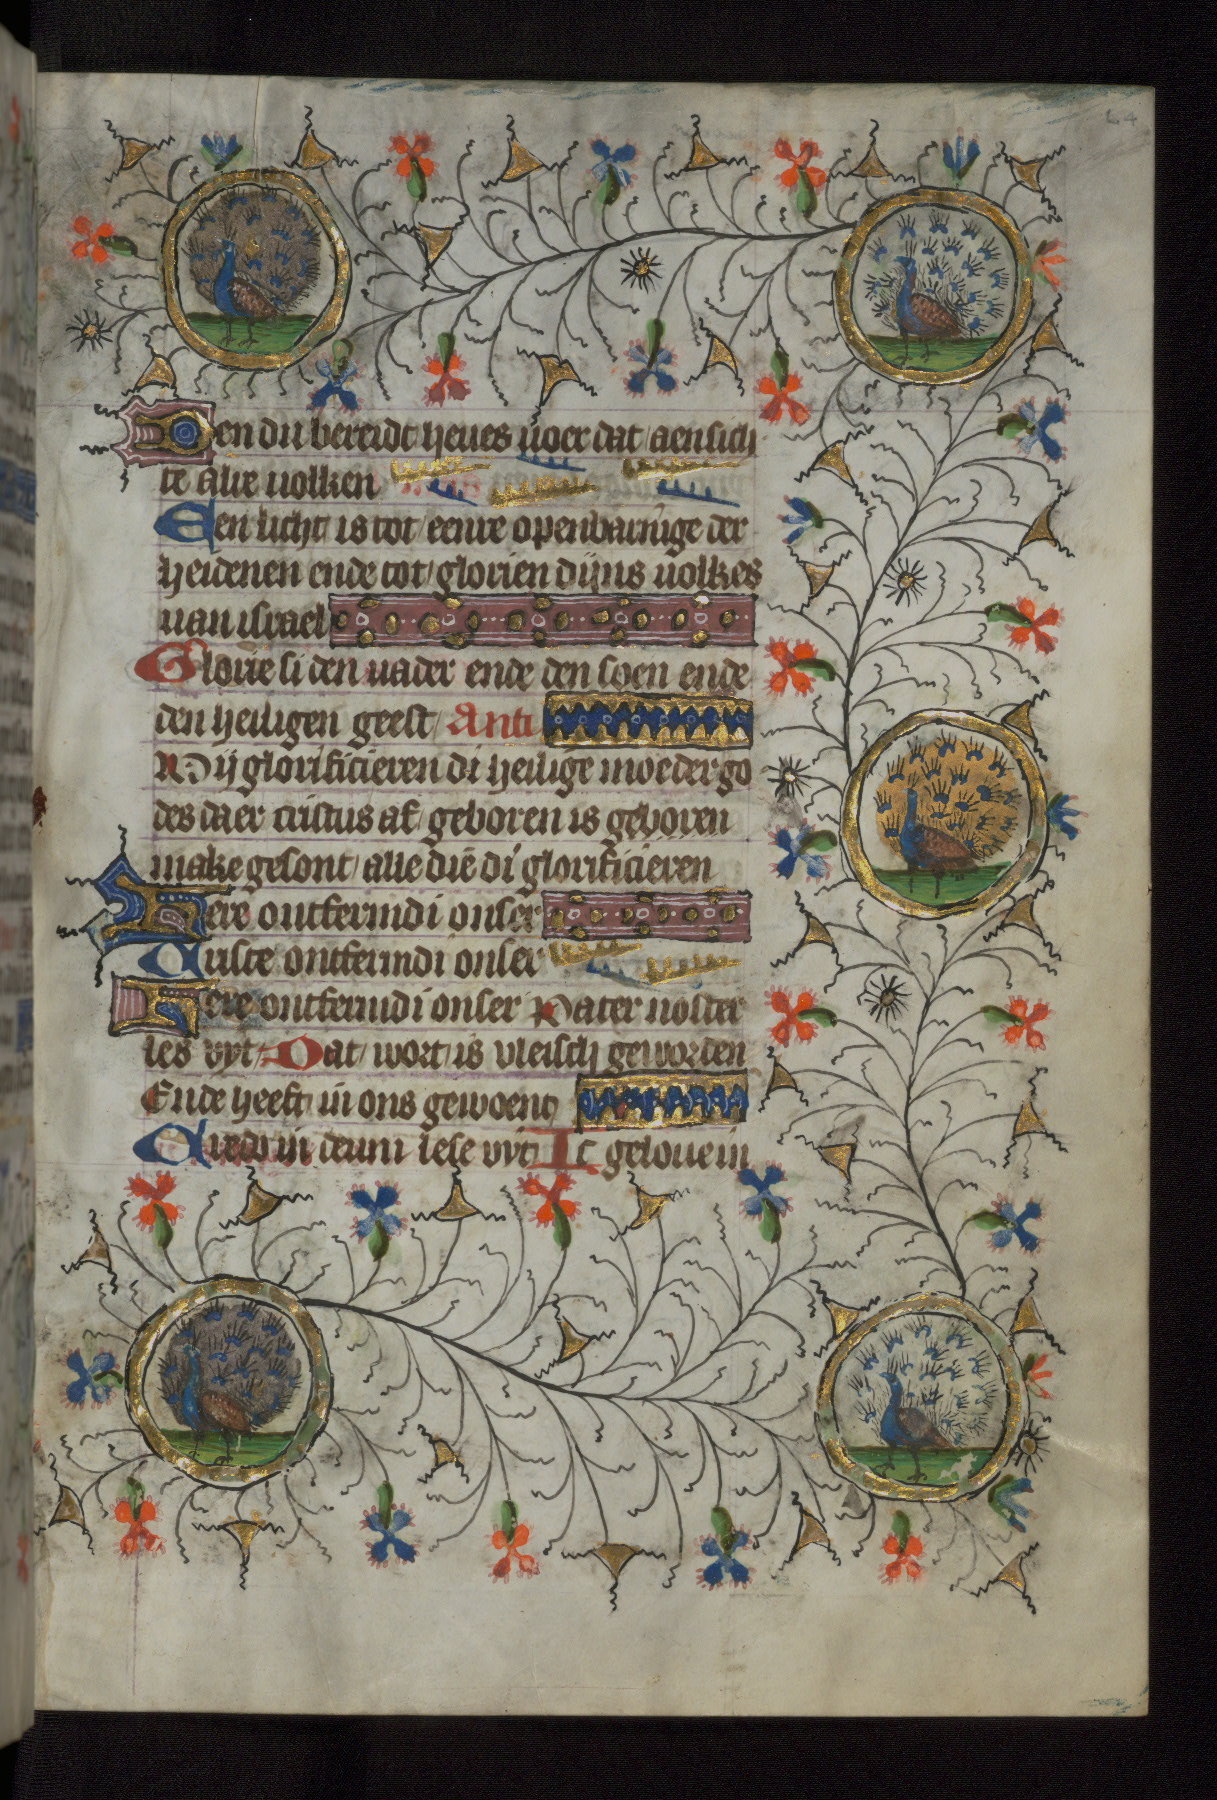 Den du bereidt heues uoer dat aensich
te alre uolken
Een licht is tot eenre openbarūge der
heidenen ende tot glorien dijns uolkes
uan israel
Glorie si den uader ende den soen ende
den heiligen geest Anti
Wij glorificieren di heilige moeder go
des daer cristus af geboren is geboren
make gesont alle die di glorificieren
Here ontfermdi onser
Criste ontfermdi onser
Here ontfermdi onser Pater noster
les vyt Dat wort is vleisch geworden
Ende heeft in ons gewoent
Credo in deum lese vyt Ic geloue in